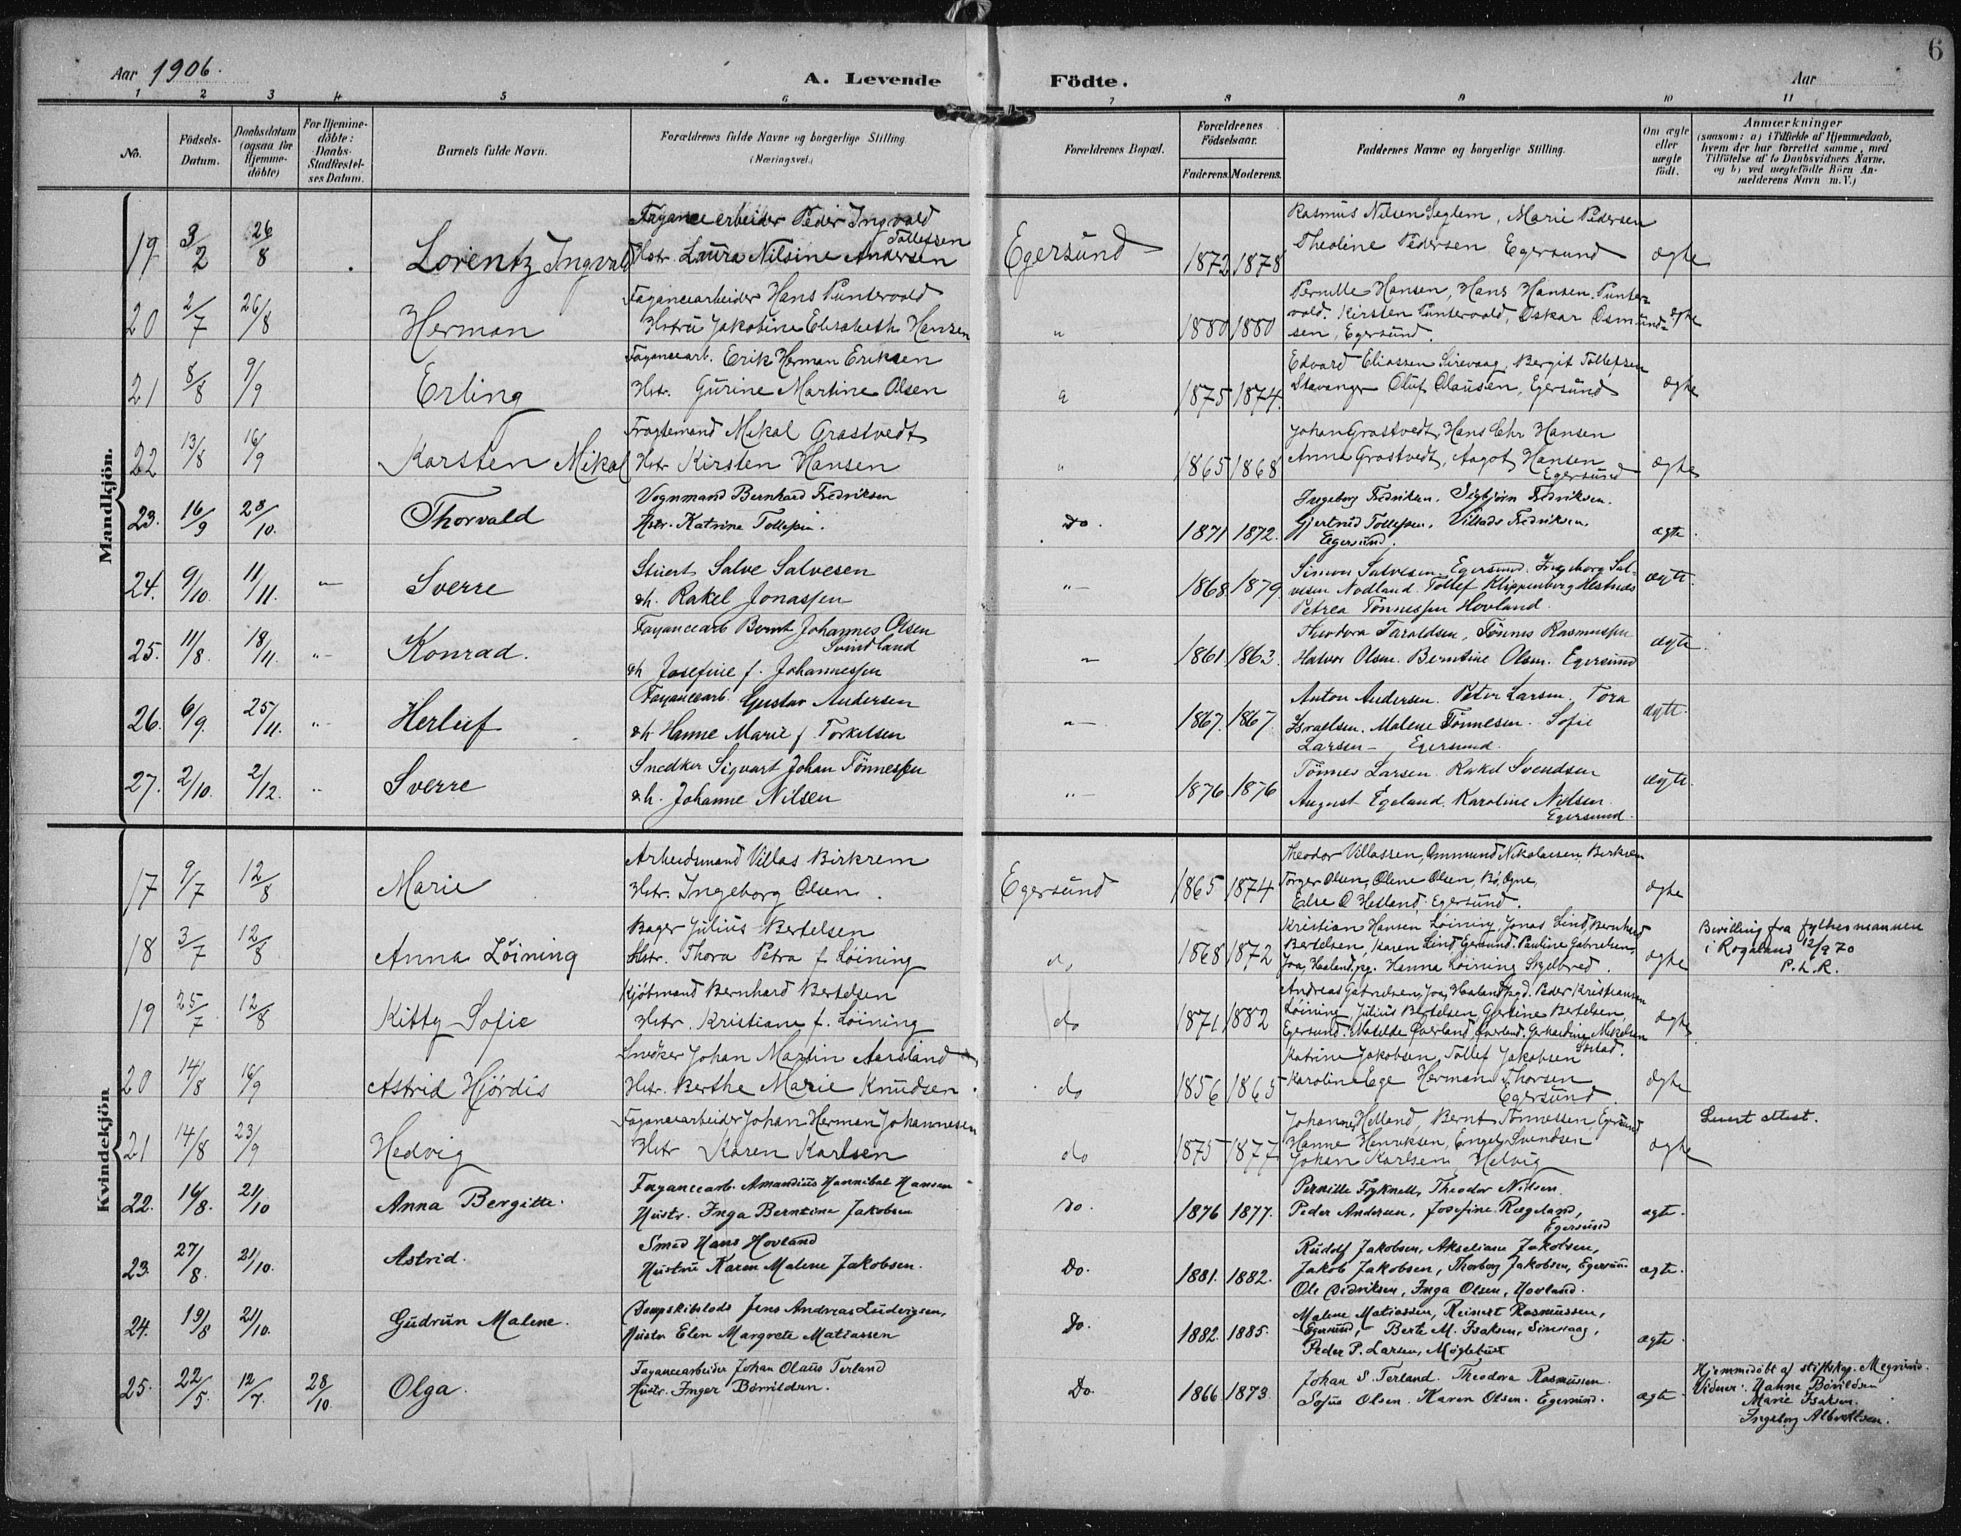 6
Aar 1906.
A. Levende Födte.
Aar
1 2 3 4 5 6 7 8 9 10 11
No.
Födsels-Datum.
Daabsdatum (ogsaa for Hjemmedöbte)
For Hjemmedöbte: Daabs-Stadfæstelses Datum.
Barnets fulde Navn.
Forældrenes fulde Navne og borgerlige Stilling (Næringsvei.)
Forældrenes Bopæl.
Forældrenes Födselsaar.
Faderens. Moderens.
Faddernes Navne og borgerlige Stilling.
Om ægte eller uægte födt.
Anmærkninger
(saasom: a) i Tilfælde af Hjemmedaab, hvem der har forrettet samme, med Tilföielse af to Daabsvidners Navne, og b) ved uægtefödte Börn Anmelderens Navn m. V.)
Mandkjön.
19 3/2 26/8 Lorentz Ingvald
Fayancearbeider Peder Ingvald Tollefsen
Hstr. Laura Nilsine Andersen
Egersund 1872 1878
Rasmus Nilsen Seglem, Marie Pedersen
Theoline Pedersen Egersund
ægte
20 2/7 26/8 Herman
Fayancearbeider Hans Puntervold
Hstru Jakobine Elisabeth Hansen
" 1880 1880
Pernille Hansen, Hans Hansen Punter-
vold, Kirsten Puntervold, Oskar Osmund-
sen, Egersund.
ægte
21 8/8 9/9 Erling
Fayancearb. Erik Herman Eriksen
Hstr. Gurine Martine Olsen
" 1875 1874.
Edvard Eliassen Sirevaag, Bergit Tollefsen
Stavanger Oluf Olausen, Egersund
ægte
22 13/8 16/9 Karsten Mikal
Fragtemand Mikal Grastvedt
Hstr Kirsten Hansen
" 1865 1868
Johan Grastvedt, Hans Chr Hansen
Anna Grastvedt, Aagot Hansen
Egersund
ægte
23. 16/9 28/10. Thorvald
Vognmand Bernhard Fredriksen
Hstr. Katrine Tollefsen.
Do. 1871 1872.
Ingeborg Fredriksen. Sigbjörn Fredriksen.
Gjertrud Tollefsen. Villads Fredriksen.
Egersund.
ægte.
24. 9/10. 11/11. " Sverre
Stuert Salve Salvesen
&h. Rakel Jonassen
" 1868 1879
Simon Salvesen. Egersund. Ingeborg Sal-
vesen Nodland. Tollef Klippenberg Hestnes
Petrea Tönnessen Hovland.
ægte.
25. 11/8. 18/11. " Konrad.
Fayancearb Bernt Johannes Olsen
Svindland
&h Josefine f. Johannessen
" 1861 1863.
Theodora Taraldsen, Tönnes Rasmussen
Halvor Olsen. Berntine Olsen. Egersund
ægte.
26. 6/9. 25/11. " Herluf
Fayancearb. Gustav Andersen
&h Hanne Marie f. Torkelsen
" 1867. 1867.
Anton Andersen. Peter Larsen. Tora
Israelsen. Malene Tönnesen. Sofie
Larsen - Egersund.
ægte.
27. 2/10. 2/12. " Sverre
Snedker Sigvart Johan Tönnessen
&h. Johanne Nilsen
" 1876. 1876
Tönnes Larsen. Rakel Svendsen
August Egeland. Karoline Nilsen.
Egersund.
ægte.
Kvindekjön
17 9/7 12/8 Marie
Arbeidsmand Villas Birkrem
Hstr. Ingeborg Olsen.
Egersund 1865 1874
Theodor Villassen, Ommund Nikolaisen, Birkrem
Torger Olsen, Olene Olsen, Bö, Ogne,
Else O Helland, Egersund.
ægte
18 3/7 12/8 Anna Löining
Bager Julius Bertelsen
Hstr. Thora Petra f. Löining
do 1868 1872
Kristian Hansen Löining, Jonas Lind, Bernhard
Bertelsen, Karen Lind, Egersund. Pauline Gabrielsen,
Joa, Haaland pg. Hanna Löining
ægte
Bevilling fra fylkesmannen
i Rogaland 12/9 70
P.L.R.
19 25/7 12/8 Kitty Sofie
Kjöbmand Bernhard Bertelsen
Hstr. Kristiane f. Löining
do 1871 1882
Andreas Gabrielsen, Joa, Haaland pgd. Peder Kristiansen
Löining, Julius Bertelsen, Gjertine Bertelsen,
Egersund. Matilde Överland, Gerhardine Mikelsen
ægte
20 14/8 16/9 Astrid Hjördis
Snedker Johan Martin Aarstand
Hstr. Berthe Marie Knudsen
do 1856 1865
Katrine Jakobsen, Tollef Jakobsen
Karoline Ege Herman Thorsen
Egersund.
ægte
21 14/8 23/9 Hedvig
Fayancearbeider Johan Herman Johannesen
Hstr Karen Karlsen
do 1875 1877
Johanne Helland, Bernt Tönnessen, Egersund
Hanne Henriksen, Engel Svendsen
Johan Karlsen, Helvig
ægte
Levert attest.
22. 16/8. 21/10 Anna Bergitte.
Fayancearb. Amandius Hannibal Hansen
Hustr. Inga Berntine Jakobsen
Do. 1876 1877.
Pernille Fryknell, Theodor Nilsen.
Peder Andersen, Josefine Rægeland,
Egersund
ægte.
23. 27/8. 21/10. Astrid.
Smed Hans Hovland
Hustru Karen Malene Jakobsen.
Do. 1881. 1882.
Rudolf Jakobsen, Akseliane Jakobsen,
Jakob Jakobsen, Thorborg Jakobsen, Egersund
Ole Didriksen, Inga Olsen, Hovland.
ægte.
24. 19/8 21/10. Gudrun Malene.
Dampskibslods Jens Andreas Ludvigsen,
Hustr. Elen Margrete Matiassen
Do. 1882. 1885.
Malene Matiassen, Reinert Rasmussen,
Egersund, - Berte M. Isaksen, Sirevaag,
Peder P. Larsen, Möglebust
ægte.
25. 22/5. 12/7. 28/10 Olga.
Fayancearbeider Johan Olaus Terland
Hustr. Inger Börildsen.
Do. 1866 1873.
Johan S. Terland. Theodora Rasmussen.
Sofus Olsen. Karen Olsen. Egersund.
ægte.
Hjemmedöbt af stiftskap. Megrund.
Vidner: Hanne Börildsen
Marie Isaksen.
Ingeborg Albretsen.